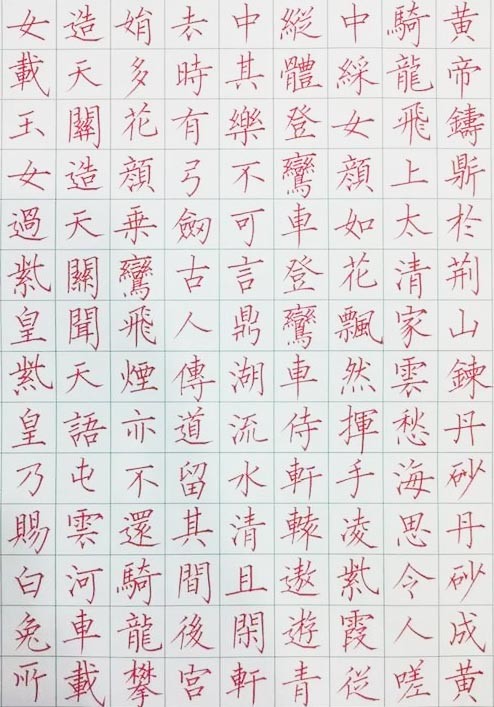 黃帝鑄鼎於荆山鍊丹砂丹砂成黃
騎龍飛上太清家雲愁海思令人嗟
中綵女顔如花飄然揮手凌紫霞從
縱體登鸞車登鸞車侍軒轅遨遊青
中其樂不可言鼎湖流水清且閑軒
去時有弓劒古人傳道留其間後宮
娟多花顔乗鸞飛煙亦不還騎龍攀
造天關造天關聞天語屯雲河車載
女載玉女過紫皇紫皇乃賜白兔所